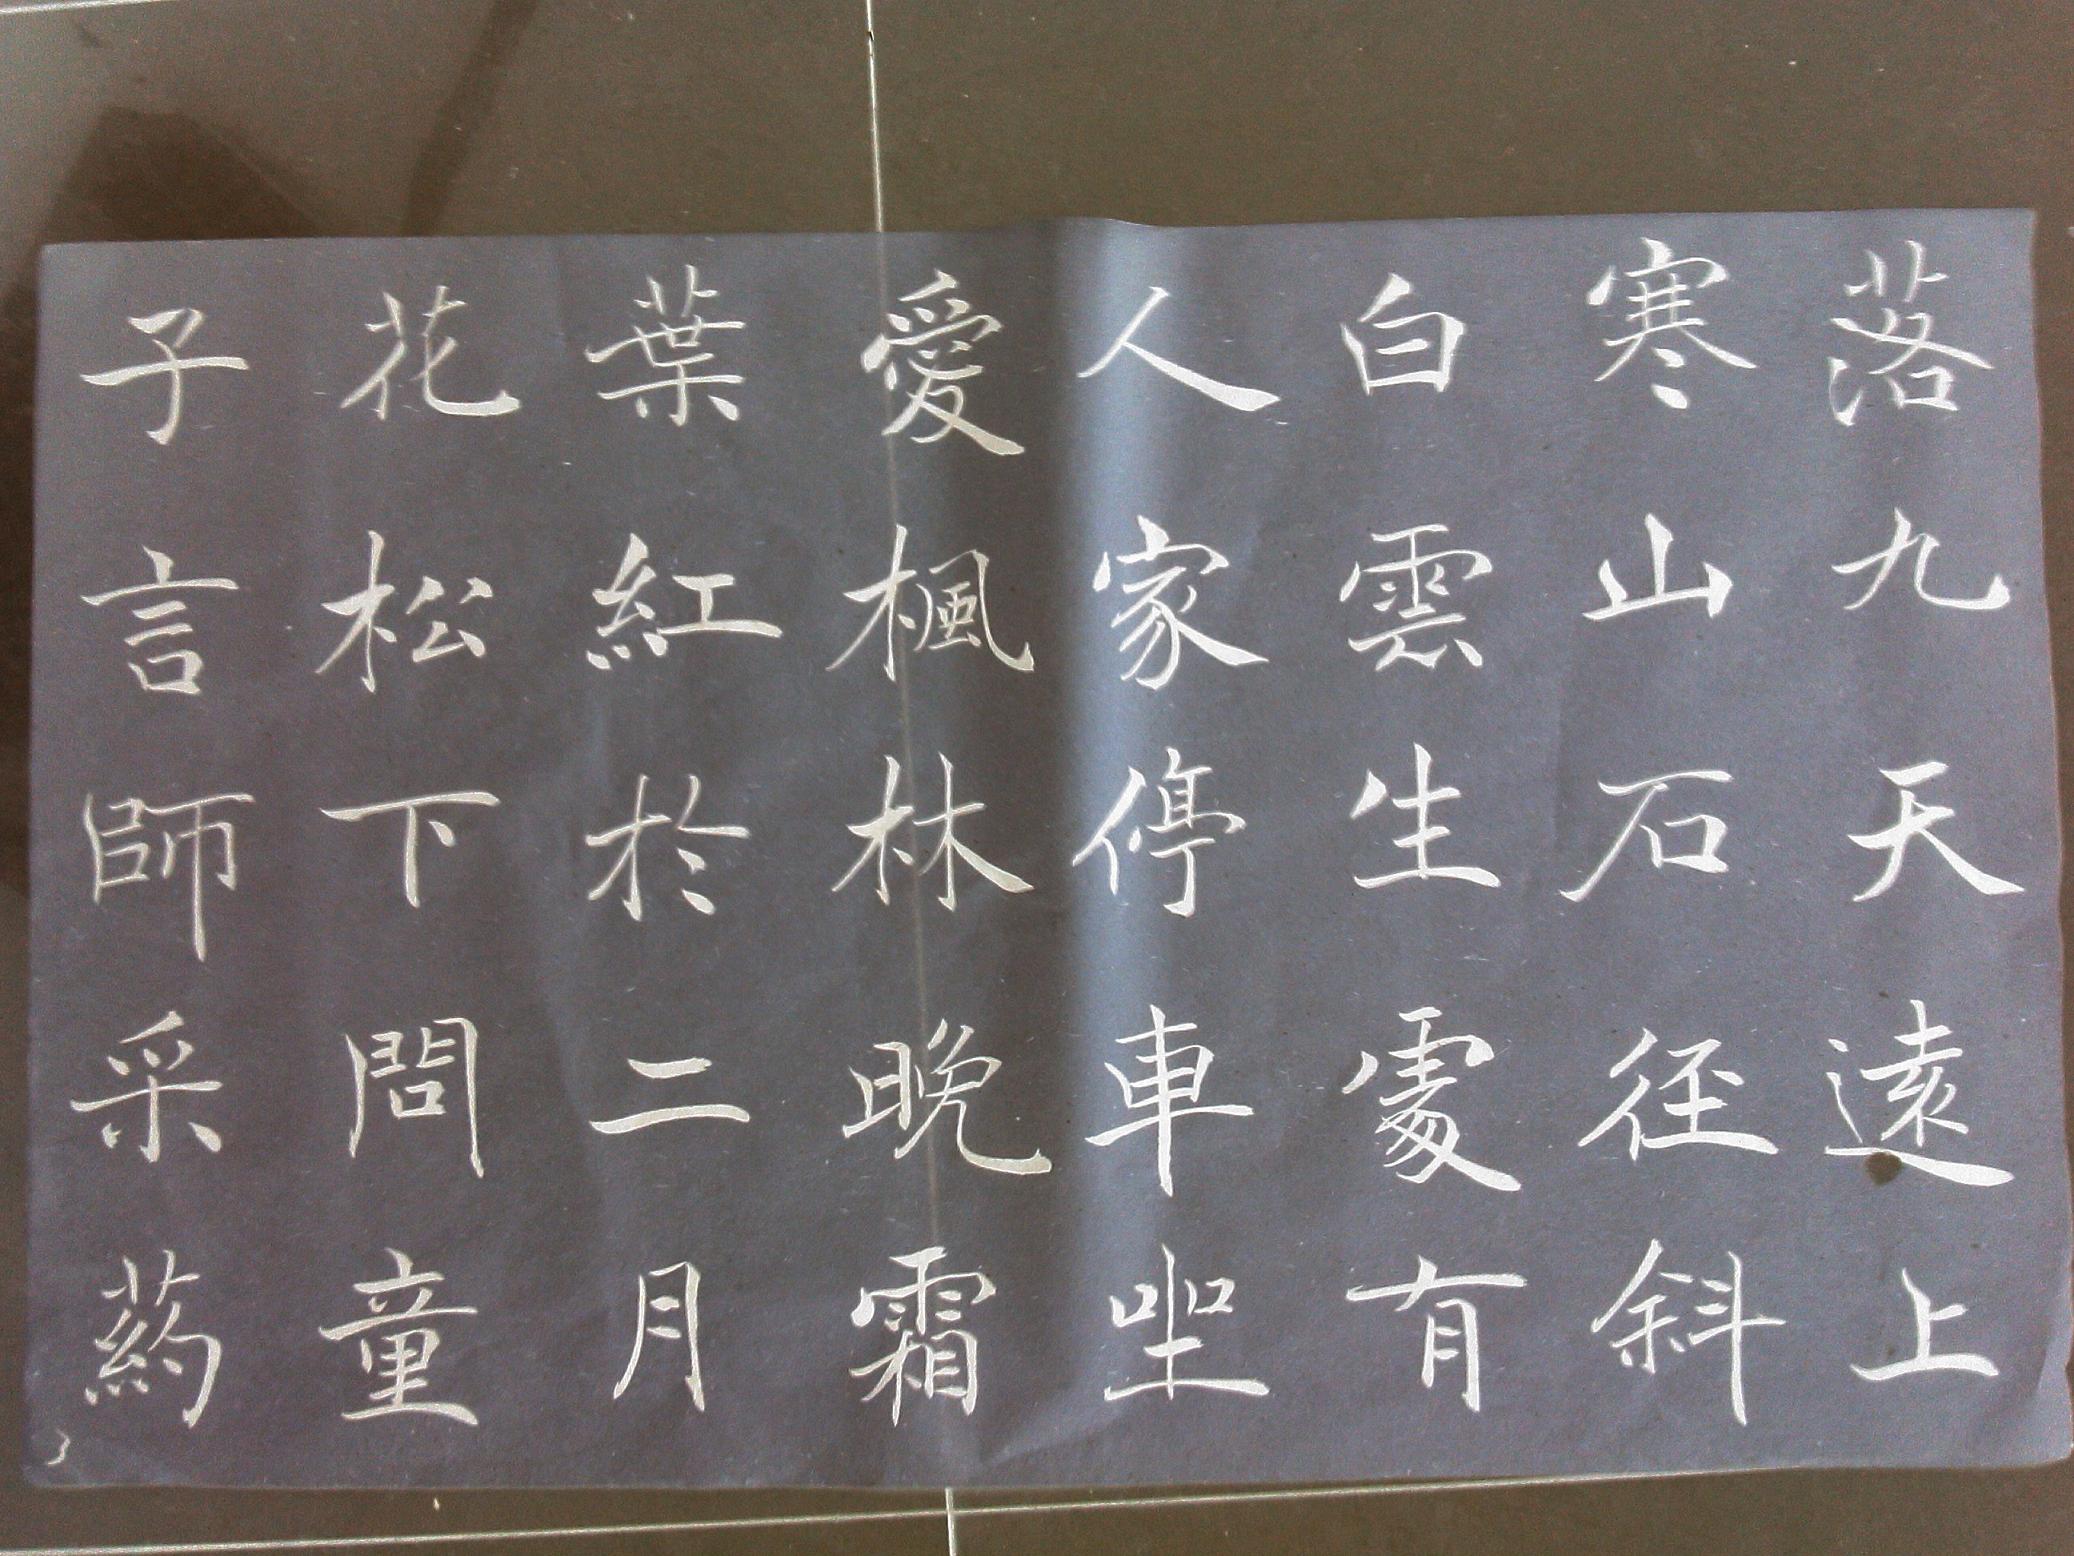 落九天遠上
寒山石径斜
白雲生處有
人家停車坐
愛楓林晚霜
葉紅於二月
花松下問童
子言師采葯
3